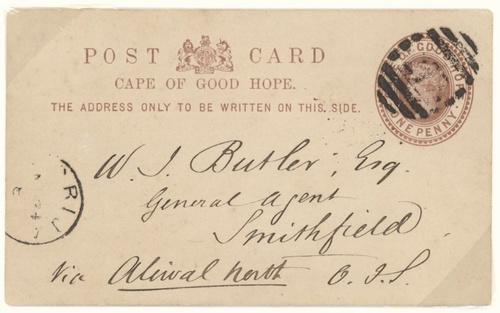 POST CARD
CAPE OF GOOD HOPE.
THE ADDRESS ONLY TO BE WRITTEN ON THIS SIDE.
ONE PENNY
W. J. Butler, Esq.
General Agent
Smithfield
Via Aliwal North O.F.S.